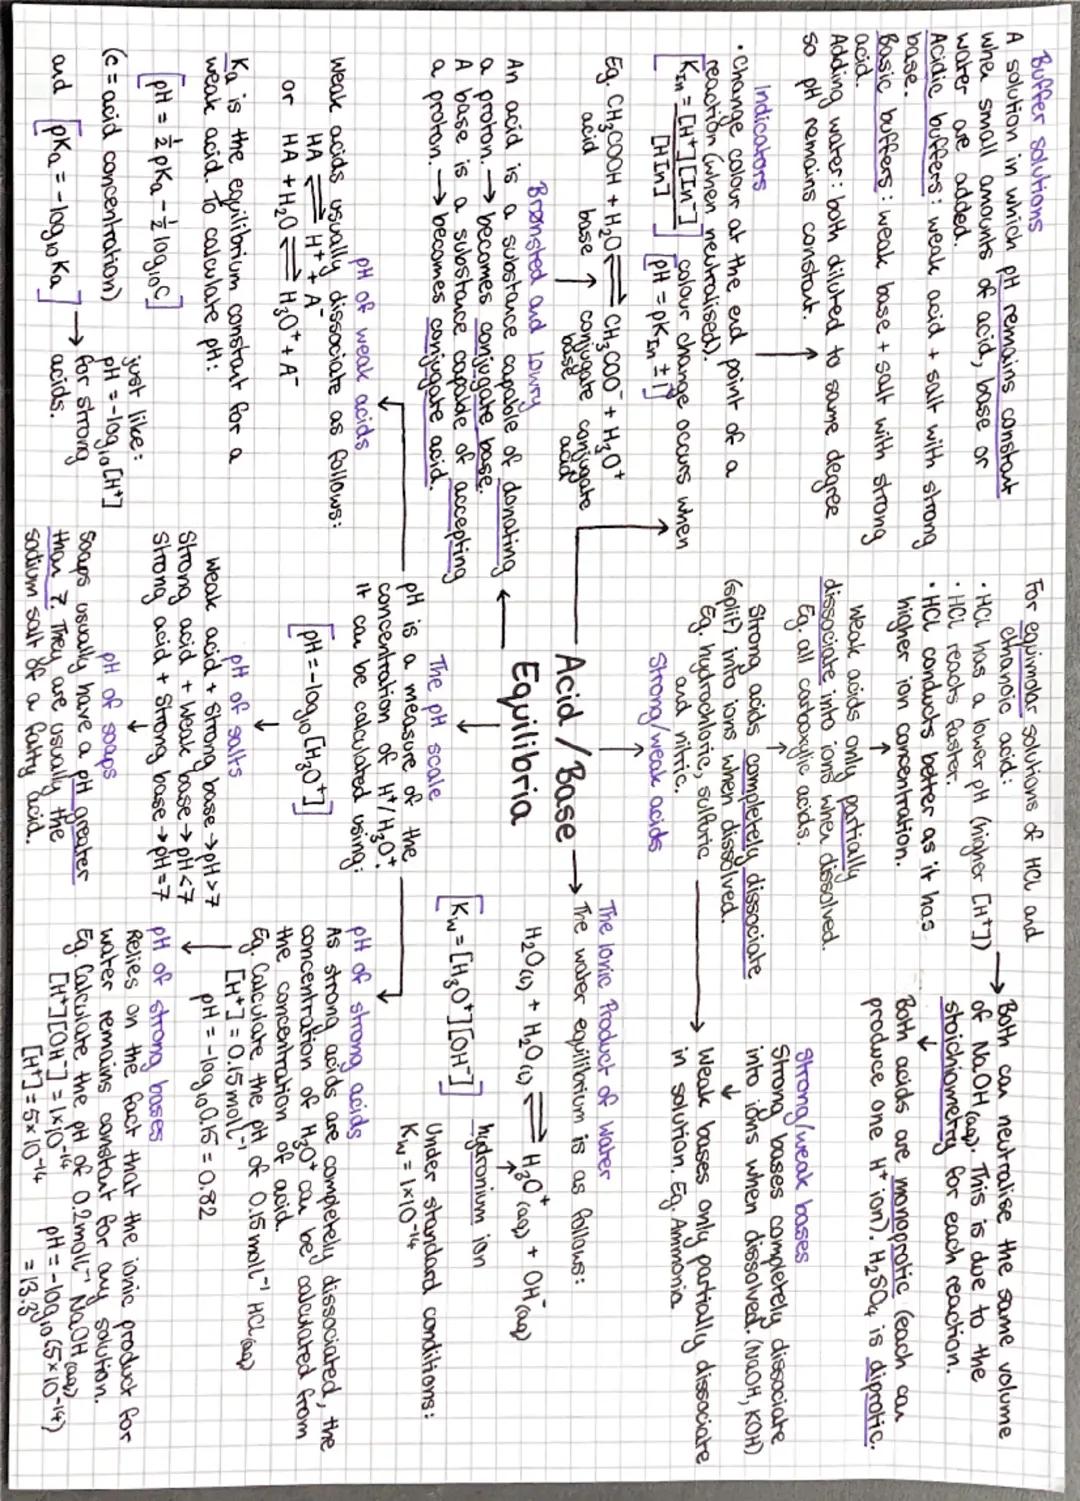 Buffer solutions
A solution in which pH remains constant
when small amounts of acid, base or
water are added.
Acidic buffers: weak acid + salt with strong
base.
Basic buffers: weak base + salt with strong
acid.
Adding water: both diluted to same degree
so pH remains constant.
Indicators
• Change colour at the end point of a
reaction (when neutralised).
[KIn = [H⁺][In⁻] / [HIn]] colour change occurs when
[pH = pKIn ± 1]
Eg. CH₃COOH + H₂O ⇌ CH₃COO⁻ + H₃O⁺
acid base → conjugate base conjugate acid
Brønsted and Lowry
An acid is a substance capable of donating
a proton. → becomes conjugate base.
A base is a substance capable of accepting
a proton. → becomes conjugate acid.
pH of weak acids
Weak acids usually dissociate as follows:
HA ⇌ H⁺ + A⁻
or HA + H₂O ⇌ H₃O⁺ + A⁻
Ka is the equilibrium constant for a
weak acid. To calculate pH:
[pH = ½ pKa - ½ log₁₀C]
(c = acid concentration)
and [pKa = -log₁₀Ka] →
just like:
pH = -log₁₀[H⁺]
for strong
acids.
For equimolar solutions of HCl and
ethanoic acid:
• HCl has a lower pH (higher [H⁺])
• HCl reacts faster.
• HCl conducts better as it has
higher ion concentration.
Weak acids only partially
dissociate into ions when dissolved.
Eg. all carboxylic acids.
Strong acids completely dissociate
(split) into ions when dissolved.
Eg. hydrochloric, sulfuric
and nitric.
Strong/weak acids
Acid/Base
Equilibria
The pH scale
pH is a measure of the
concentration of H⁺/H₃O⁺.
It can be calculated using:
[pH = -log₁₀[H₃O⁺]]
pH of salts
Weak acid + strong base → pH>7
Strong acid + weak base → pH<7
Strong acid + strong base → pH=7
pH of soaps
Soaps usually have a pH greater
than 7. They are usually the
sodium salt of a fatty acid.
Both can neutralise the same volume
of NaOH(aq). This is due to the
stoichiometry for each reaction.
Both acids are monoprotic (each can
produce one H⁺ ion). H₂SO₄ is diprotic.
Strong/weak bases
Strong bases completely dissociate
into ions when dissolved. (NaOH, KOH)
Weak bases only partially dissociate
in solution. Eg. Ammonia
The Ionic Product of Water
The water equilibrium is as follows:
H₂O(l) + H₂O(l) ⇌ H₃O⁺(aq) + OH⁻(aq)
hydronium ion
[Kw = [H₃O⁺][OH⁻]]
Under standard conditions:
Kw = 1×10⁻¹⁴
pH of strong acids
As strong acids are completely dissociated, the
concentration of H₃O⁺ can be calculated from
the concentration of acid.
Eg. Calculate the pH of 0.15 mol L⁻¹ HCl(aq)
[H⁺] = 0.15 mol L⁻¹
pH = -log₁₀ 0.15 = 0.82
pH of strong bases
Relies on the fact that the ionic product for
water remains constant for any solution.
Eg. Calculate the pH of 0.2 mol L⁻¹ NaOH(aq)
[H⁺][OH⁻] = 1×10⁻¹⁴
[H⁺] = 5×10⁻¹⁴ pH = -log₁₀(5×10⁻¹⁴)
= 13.3